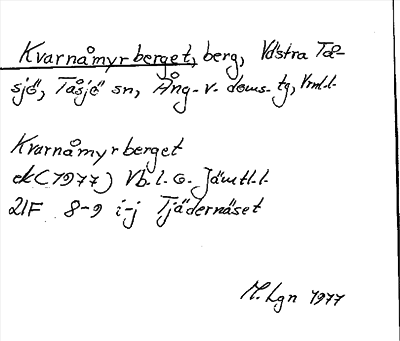 Kvarnåmyrberget, berg, Västra Tå-
sjö, Tåsjö sn, Ång. v. doms. tg, Vrnl.l.
Kvarnåmyrberget
ek (1977) Vb.l. o. Jämtl.l.
21F 8-9 i-j Tjädernäset
M. Lgn 1977